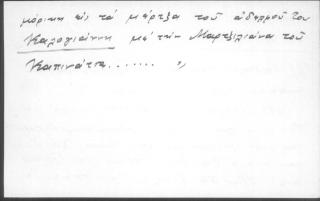 μόρικη εἰς τά μπάρτζα τοῦ ἀδερφοῦ του
Καλογιάννη μέ τήν Μαρτζιλιάνα τοῦ
Καπινάτσα....... ",